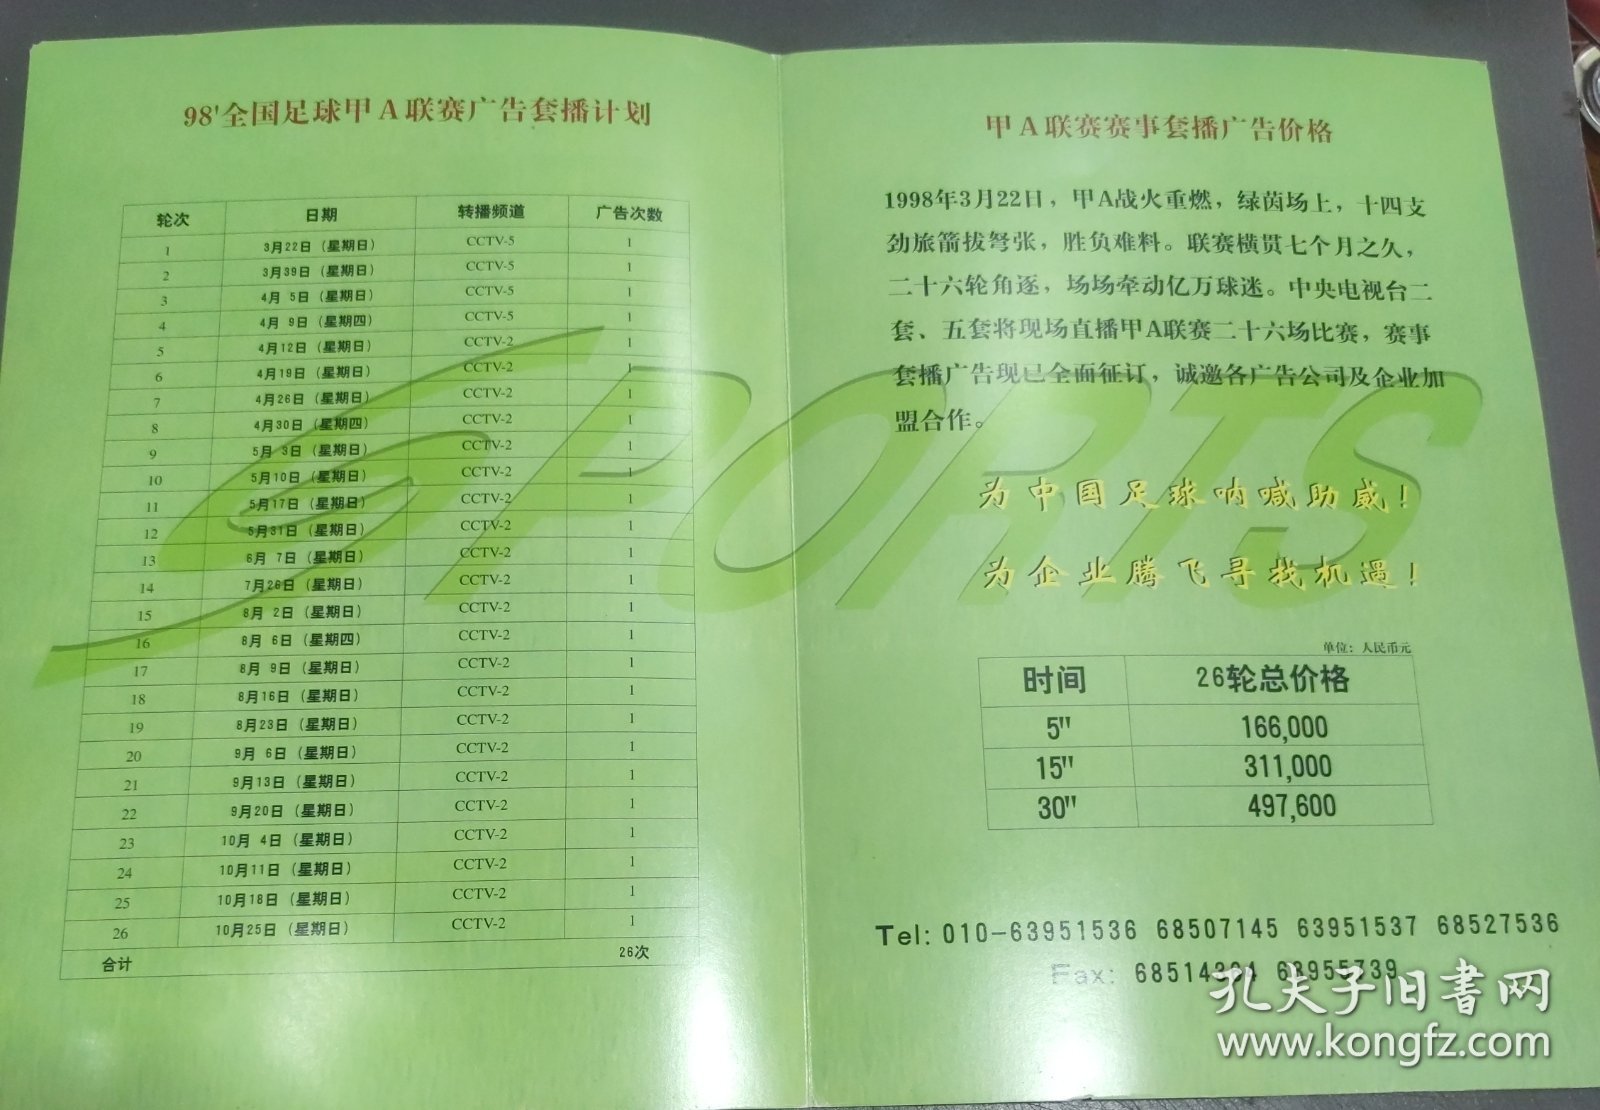 98'全国足球甲A联赛广告套播计划
轮次 日期 转播频道 广告次数
1 3月22日（星期日） CCTV-5 1
2 3月39日（星期日） CCTV-5 1
3 4月 5日（星期日） CCTV-5 1
4 4月 9日（星期四） CCTV-5 1
5 4月12日（星期日） CCTV-2 1
6 4月19日（星期日） CCTV-2 1
7 4月26日（星期日） CCTV-2 1
8 4月30日（星期四） CCTV-2 1
9 5月 3日（星期日） CCTV-2 1
10 5月10日（星期日） CCTV-2 1
11 5月17日（星期日） CCTV-2 1
12 5月31日（星期日） CCTV-2 1
13 6月 7日（星期日） CCTV-2 1
14 7月26日（星期日） CCTV-2 1
15 8月 2日（星期日） CCTV-2 1
16 8月 6日（星期四） CCTV-2 1
17 8月 9日（星期日） CCTV-2 1
18 8月16日（星期日） CCTV-2 1
19 8月23日（星期日） CCTV-2 1
20 9月 6日（星期日） CCTV-2 1
21 9月13日（星期日） CCTV-2 1
22 9月20日（星期日） CCTV-2 1
23 10月 4日（星期日） CCTV-2 1
24 10月11日（星期日） CCTV-2 1
25 10月18日（星期日） CCTV-2 1
26 10月25日（星期日） CCTV-2 1
合计 26次
SPORTS
甲A联赛赛事套播广告价格
1998年3月22日，甲A战火重燃，绿茵场上，十四支
劲旅箭拔弩张，胜负难料。联赛横贯七个月之久，
二十六轮角逐，场场牵动亿万球迷。中央电视台二
套、五套将现场直播甲A联赛二十六场比赛，赛事
套播广告现已全面征订，诚邀各广告公司及企业加
盟合作。
为中国足球呐喊助威！
为企业腾飞寻找机遇！
单位：人民币元
时间 26轮总价格
5" 166,000
15" 311,000
30" 497,600
Tel: 010-63951536 68507145 63951537 68527536
Fax: 68514304 63955739
孔夫子旧书网
www.kongfz.com